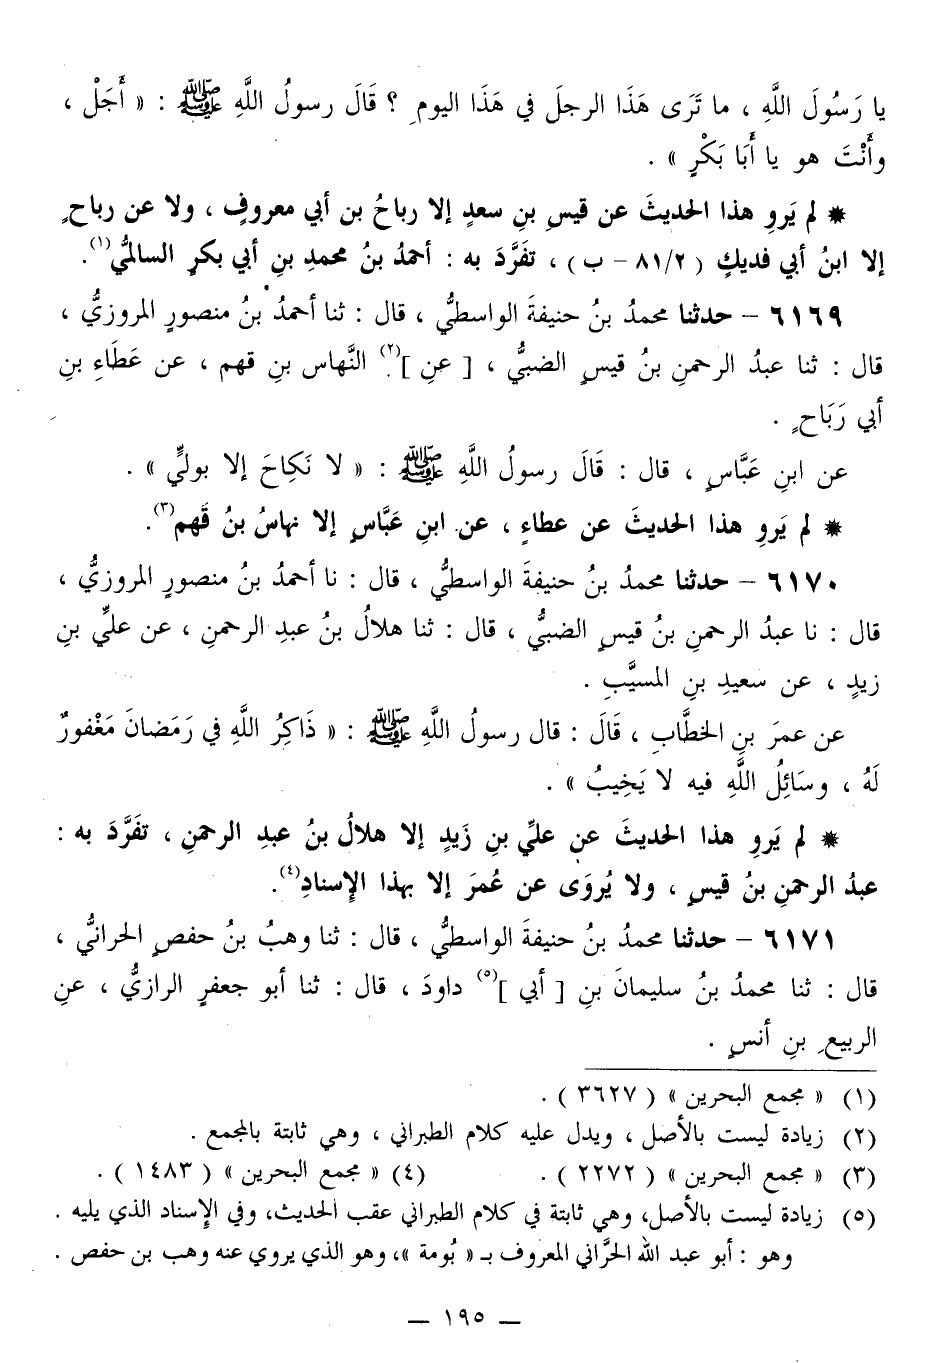 يا رَسُولَ اللَّهِ ، ما تَرَى هَذَا الرجلَ في هَذَا اليومِ ؟ قَالَ رسولُ اللَّهِ ﷺ : « أَجَلْ ،
وأَنْتَ هو يا أَبَا بَكْرٍ » .
* لم يَروِ هذا الحديثَ عن قيسِ بنِ سعدٍ إلا رباحُ بن أبي معروفٍ ، ولا عن رباحٍ
إلا ابنُ أبي فديكٍ ( ٨١/٢ – ب ) ، تفَرَّدَ به : أحمدُ بنُ محمدِ بنِ أبي بكرٍ السالميُّ(١).
٦١٦٩ – حدثنا محمدُ بنُ حنيفةَ الواسطيُّ ، قال : ثنا أحمدُ بنُ منصورٍ المروزيُّ ،
قال : ثنا عبدُ الرحمنِ بنُ قيسٍ الضبيُّ ، [ عنِ ](٢) النَّهاس بنِ قهم ، عن عَطَاءِ بنِ
أبي رَبَاحٍ .
عن ابنِ عَبَّاسٍ ، قال : قَالَ رسولُ اللَّهِ ﷺ : « لا نَكِاحَ إلا بوليٍّ » .
* لم يَروِ هذا الحديثَ عن عطاءٍ ، عن ابنِ عَبَّاسٍ إلا نهاسُ بنُ قَهم(٣).
٦١٧٠ – حدثنا محمدُ بنُ حنيفةَ الواسطيُّ ، قال : نا أحمدُ بنُ منصورٍ المروزيُّ ،
قال : نا عبدُ الرحمنِ بنُ قيسٍ الضبيُّ ، قال : ثنا هلالُ بنُ عبدِ الرحمنِ ، عن عليِّ بنِ
زيدٍ ، عن سعيدِ بنِ المسيَّبِ .
عن عمرَ بنِ الخطَّابِ ، قَالَ : قال رسولُ اللَّهِ ﷺ : « ذَاكِرُ اللَّهِ في رَمَضانَ مَغْفورٌ
لَهُ ، وسَائِلُ اللَّهِ فيه لا يَخِيبُ » .
* لم يَروِ هذا الحديثَ عن عليِّ بنِ زَيدٍ إلا هلالُ بنُ عبدِ الرحمنِ ، تفَرَّدَ به :
عبدُ الرحمنِ بنُ قيسٍ ، ولا يُروَى عن عُمرَ إلا بهذا الإسنادِ(٤).
٦١٧١ – حدثنا محمدُ بنُ حنيفةَ الواسطيُّ ، قال : ثنا وهبُ بنُ حفصٍ الحرانيُّ ،
قال : ثنا محمدُ بنُ سليمانَ بنِ [ أبي ](٥) داودَ ، قال : ثنا أبو جعفرٍ الرازيُّ ، عنِ
الربيعِ بنِ أنسٍ .
(١) « مجمع البحرين » ( ٣٦٢٧ ) .
(٢) زيادة ليست بالأصل ، ويدل عليه كلام الطبراني ، وهي ثابتة بالمجمع .
(٣) « مجمع البحرين » ( ٢٢٧٢ ) . (٤) « مجمع البحرين » ( ١٤٨٣ ) .
(٥) زيادة ليست بالأصل، وهي ثابتة في كلام الطبراني عقب الحديث، وفي الإسناد الذي يليه .
وهو : أبو عبد الله الحرَّاني المعروف بـ « بُومة »، وهو الذي يروي عنه وهب بن حفص .
– ١٩٥ –